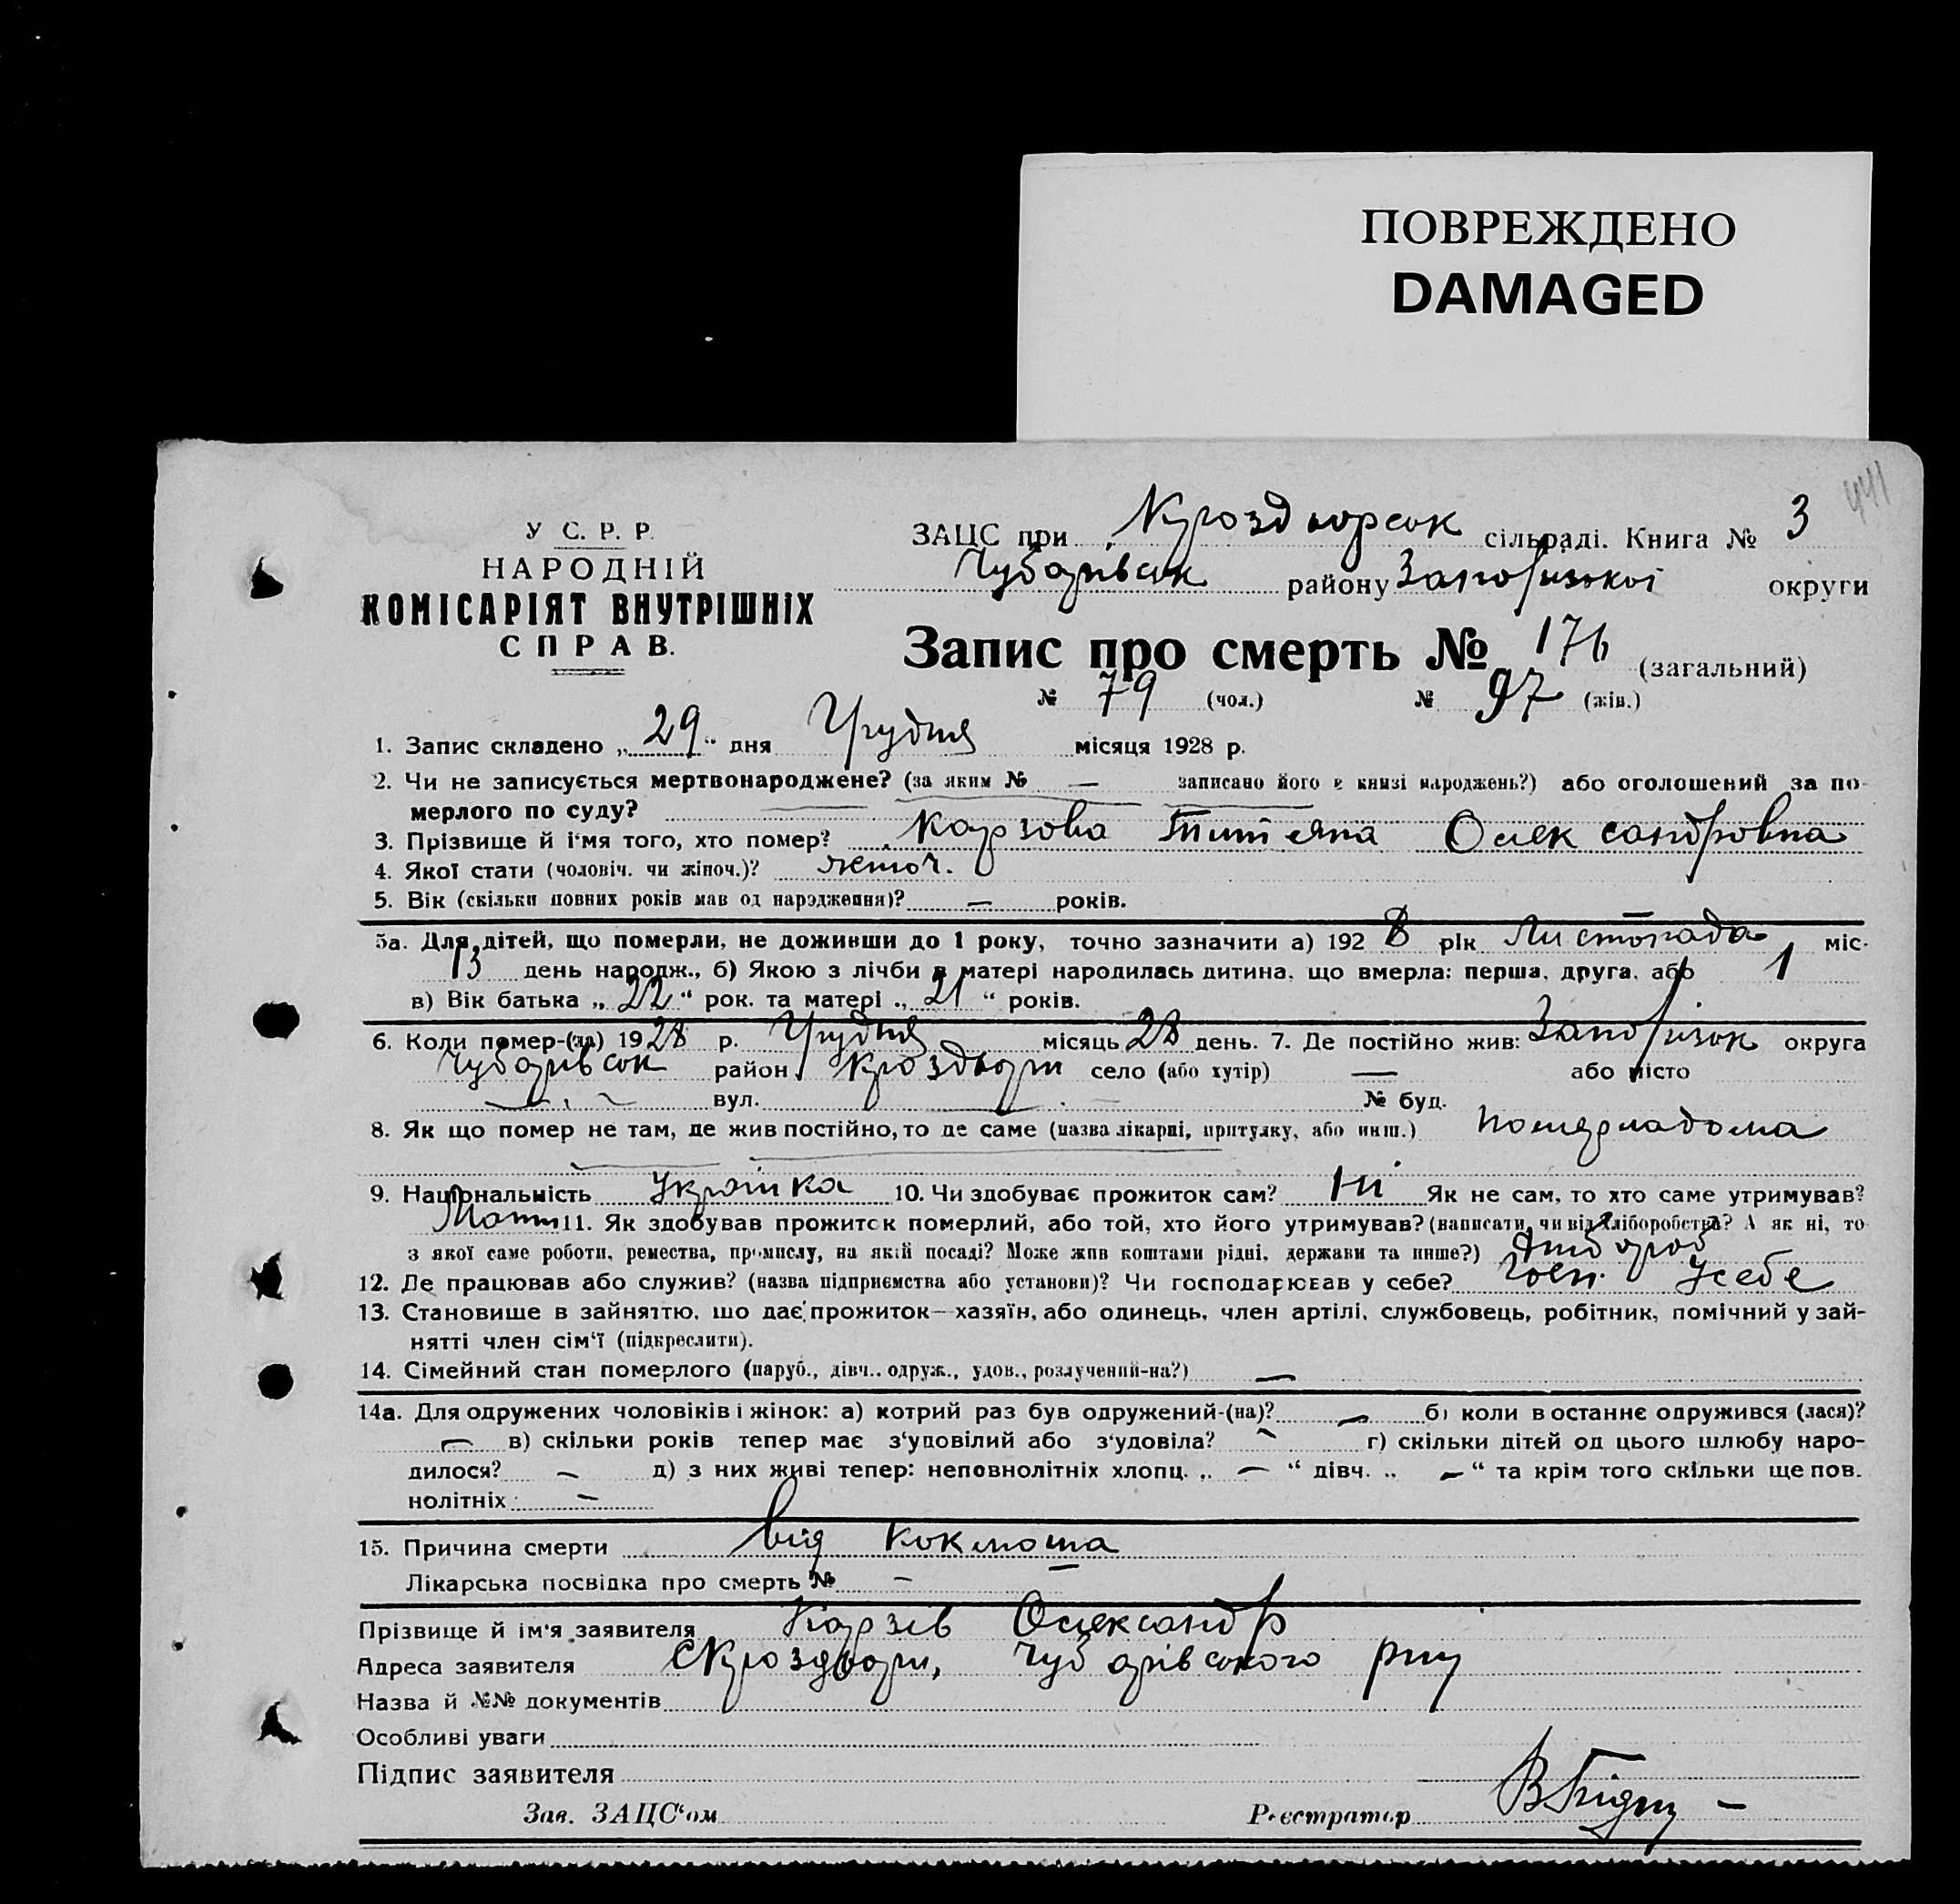 ПОВРЕЖДЕНО
DAMAGED
441
У С. Р. Р.
НАРОДНІЙ
КОМІСАРІЯТ ВНУТРІШНІХ
СПРАВ.
ЗАЦС при сільраді. Книга № 3
Чубарівськ району Запорізької округи
Запис про смерть № 176 (загальний)
№ 79 (чол.) № 97 (жін.)
1. Запис складено „ 29 “ дня Грудня місяця 1928 р.
2. Чи не записується мертвонароджене? (за яким № — записано його в книзі народжень?) або оголошений за по-
мерлого по суду?
3. Прізвище й ім'я того, хто помер? Карзова Титяна Олександровна
4. Якої стати (чоловіч. чи жіноч.)? жіноч.
5. Вік (скільки повних років мав од народження)? — років.
5а. Для дітей, що померли, не доживши до 1 року, точно зазначити а) 192 8 рік Листопада міс.
13 день народж., б) Якою з лічби в матері народилась дитина, що вмерла: перша, друга, або 1
в) Вік батька „ 22 “ рок. та матері „ 21 “ років.
6. Коли помер-(ла) 19 28 р. Грудня місяць 28 день. 7. Де постійно жив: Запорізок округа
Чубарівсок район село (або хутір) — або місто
вул. № буд.
8. Як що помер не там, де жив постійно, то де саме (назва лікарні, притулку, або инш.) дома
9. Національність Українка 10. Чи здобуває прожиток сам? Ні Як не сам, то хто саме утримував?
Мати 11. Як здобував прожиток померлий, або той, хто його утримував? (написати, чи від хліборобства? А як ні, то
з якої саме роботи, ремества, промислу, на якій посаді? Може жив коштами рідні, держави та инше?) Хлібороб
12. Де працював або служив? (назва підприємства або установи)? Чи господарював у себе? Госп. Усебе
13. Становище в зайняттю, що дає прожиток—хазяїн, або одинець, член артілі, службовець, робітник, помічний у зай-
нятті член сім'ї (підкреслити).
14. Сімейний стан померлого (паруб., дівч., одруж., удов., розлучений-на?) —
14а. Для одружених чоловіків і жінок: а) котрий раз був одружений-(на)? — б) коли в останнє одружився (лася)?
— в) скільки років тепер має з'удовілий або з'удовіла? — г) скільки дітей од цього шлюбу наро-
дилося? — д) з них живі тепер: неповнолітніх хлопц. „ — “ дівч. „ — “ та крім того скільки ще пов.
нолітніх —
15. Причина смерти від коклюша
Лікарська посвідка про смерть № — —
Прізвище й ім'я заявителя Карзів Олександр
Адреса заявителя Чубарівського рну
Назва й №№ документів
Особливі уваги
Підпис заявителя
Зав. ЗАЦС'ом Реєстратор